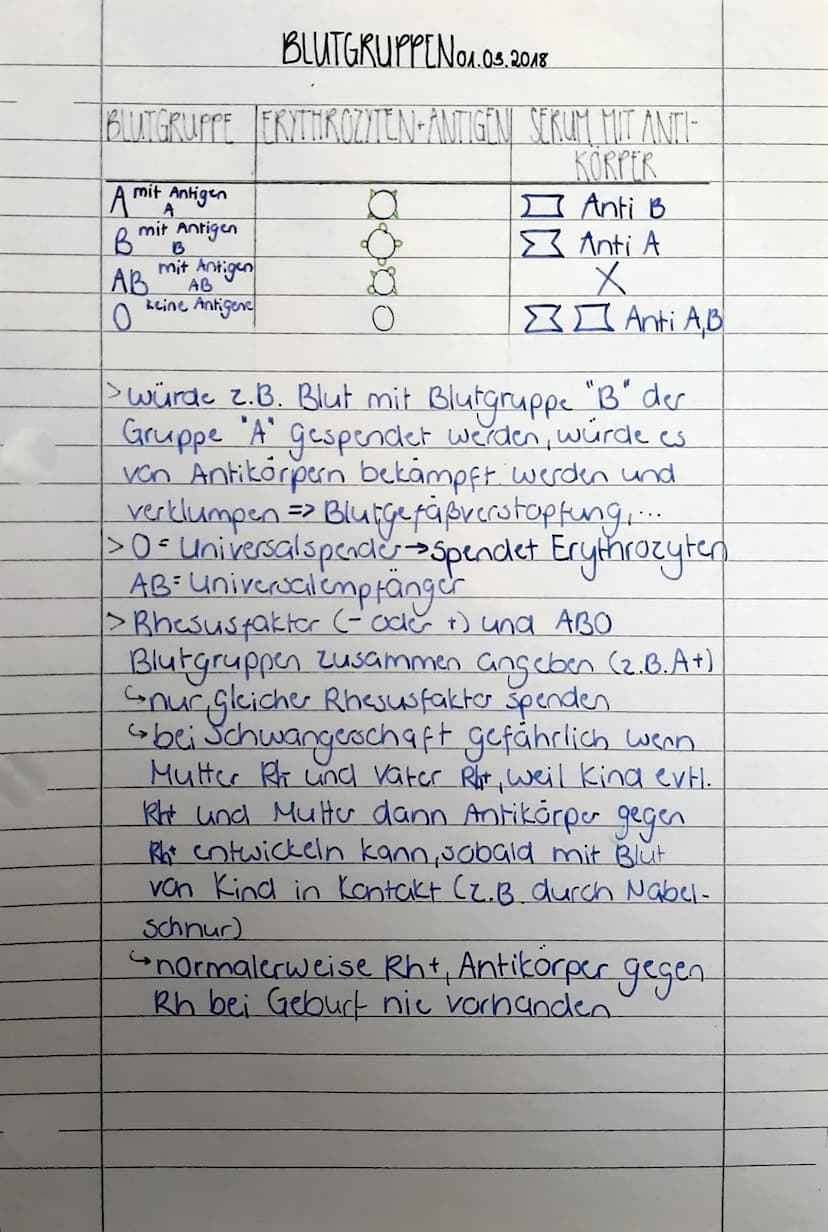 BLUTGRUPPEN 01.03.2018
BLUTGRUPPE ERYTHROZYTEN+ANTIGEN SERUM MIT ANTI-
KÖRPER
A mit Antigen A Anti B
B mit Antigen B Anti A
AB mit Antigen AB X
0 keine Antigene Anti A,B
> würde z.B. Blut mit Blutgruppe "B" der
Gruppe "A" gespendet werden, würde es
von Antikörpern bekämpft werden und
verklumpen => Blutgefäßverstopfung,...
> 0 = Universalspender → spendet Erythrozyten
AB = Universalempfänger
> Rhesusfaktor (- oder +) und AB0
Blutgruppen zusammen angeben (z.B. A+)
↳ nur gleicher Rhesusfaktor spenden
↳ bei Schwangerschaft gefährlich wenn
Mutter Rh- und Vater Rh+, weil Kind evtl.
Rh+ und Mutter dann Antikörper gegen
Rh+ entwickeln kann, sobald mit Blut
von Kind in Kontakt (z.B. durch Nabel-
schnur)
↳ normalerweise Rh+, Antikörper gegen
Rh bei Geburt nie vorhanden